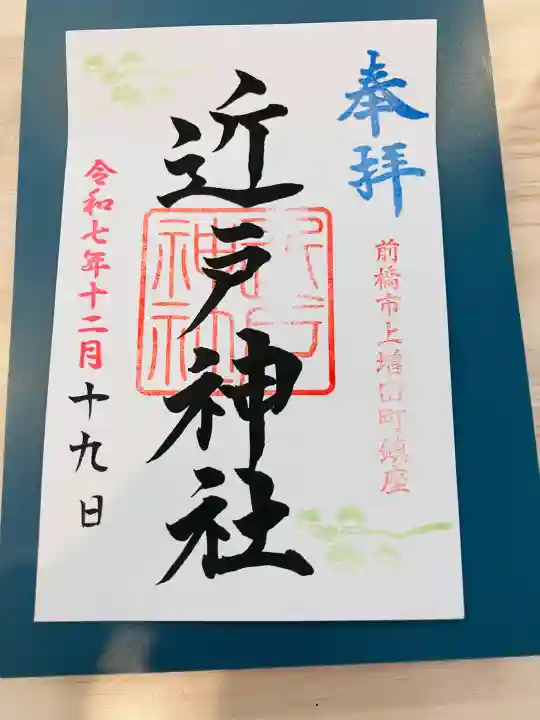 奉拝
前橋市上増田町鎮座
近戸神社
令和七年十二月十九日